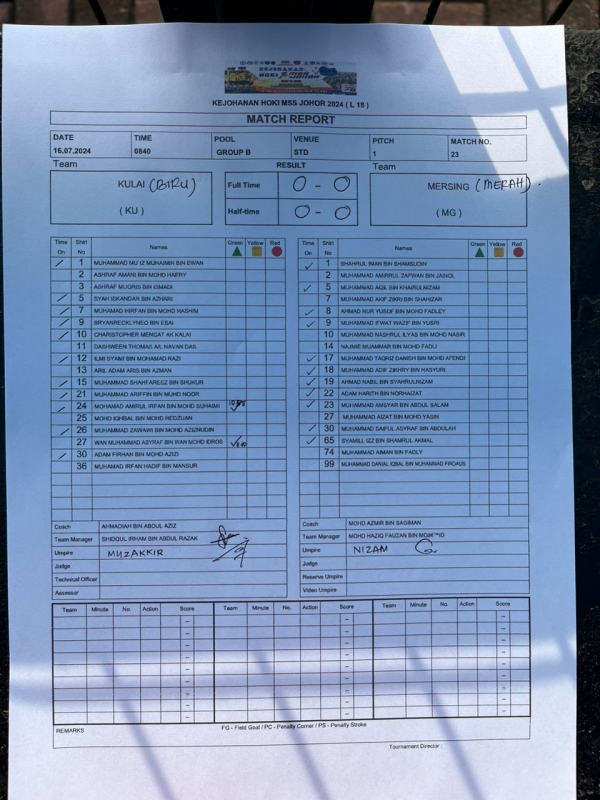 KEJOHANAN
HOKI
KEJOHANAN HOKI MSS JOHOR 2024 ( L 18 )
MATCH REPORT
DATE TIME POOL VENUE PITCH MATCH NO.
16.07.2024 0840 GROUP B STD 1 23
Team RESULT Team
KULAI (BIRU) Full Time 0 - 0 MERSING (MERAH)
( KU ) Half-time 0 - 0 ( MG )
Time On Shirt No Names Green Yellow Red
1 MUHAMMAD MU'IZ MUHAIMIN BIN EWAN
2 ASHRAF AMANI BIN MOHD HAFRY
3 ASHRAF MUQRIS BIN ISMADI
5 SYAH ISKANDAR BIN AZHARI
7 MUHAMAD HIRFAN BIN MOHD HASHIM
9 BRYANRECKLYNEO BIN ESAI
10 CHARISTOPHER MENGAT AK KALAI
11 DASHWEEN THOMAS A/L NAVAN DAS
12 ILMI SYAMI BIN MOHAMAD RAZI
13 ARIL ADAM ARIS BIN AZMAN
15 MUHAMMAD SHAHFAREEZ BIN SHUKUR
21 MUHAMMAD ARIFFIN BIN MUHD NOOR
24 MOHAMAD AMIRUL IRFAN BIN MOHD SUHAIMI
25 MOHD IQHBAL BIN MOHD REDZUAN
26 MUHAMMAD ZAWAWI BIN MOHD AZIZNUDIN
27 WAN MUHAMMAD ASYRAF BIN WAN MOHD IDROS
30 ADAM FIRHAN BIN MOHD AZIZI
36 MUHAMAD IRFAN HADIF BIN MANSUR
Coach AHMADIAH BIN ABDUL AZIZ
Team Manager SHIDQUL IRHAM BIN ABDUL RAZAK
Umpire MUZAKKIR
Judge
Technical Officer
Assessor
Time On Shirt No Names Green Yellow Red
1 SHAHRUL IMAN BIN SHAMSUDIN
2 MUHAMMAD AMIRRUL ZAFWAN BIN JAINOL
5 MUHAMMAD AQIL BIN KHAIRULNIZAM
7 MUHAMMAD AKIF ZIKRI BIN SHAHIZAR
8 AHMAD NUR YUSOF BIN MOHD FADLEY
9 MUHAMMAD IFWAT WAZIF BIN YUSRI
10 MUHAMMAD NASHRUL ILYAS BIN MOHD NASIR
14 NAJMIE MUAMMAR BIN MOHD FADLI
17 MUHAMMAD TAQRIZ DANISH BIN MOHD AFENDI
18 MUHAMMAD ADIF ZIKHRY BIN HASYURI
19 AHMAD NABIL BIN SYAHRULNIZAM
22 ADAM HARITH BIN NORHAIZAT
23 MUHAMMAD AMSYAR BIN ABDUL SALAM
27 MUHAMMAD AIZAT BIN MOHD YASIN
30 MUHAMMAD SAIFUL ASYRAF BIN ABDULAH
65 SYAMILL IZZ BIN SHAMRUL AKMAL
74 MUHAMMAD AIMAN BIN FADLY
99 MUHAMMAD DANIAL IQBAL BIN MUHAMMAD FIRDAUS
Coach MOHD AZMIR BIN SAGIMAN
Team Manager MOHD HAZIQ FAUZAN BIN
Umpire NIZAM
Judge
Reserve Umpire
Video Umpire
Team Minute No. Action Score Team Minute No. Action Score Team Minute No. Action Score
REMARKS FG - Field Goal / PC - Penalty Corner / PS - Penalty Stroke
Tournament Director :